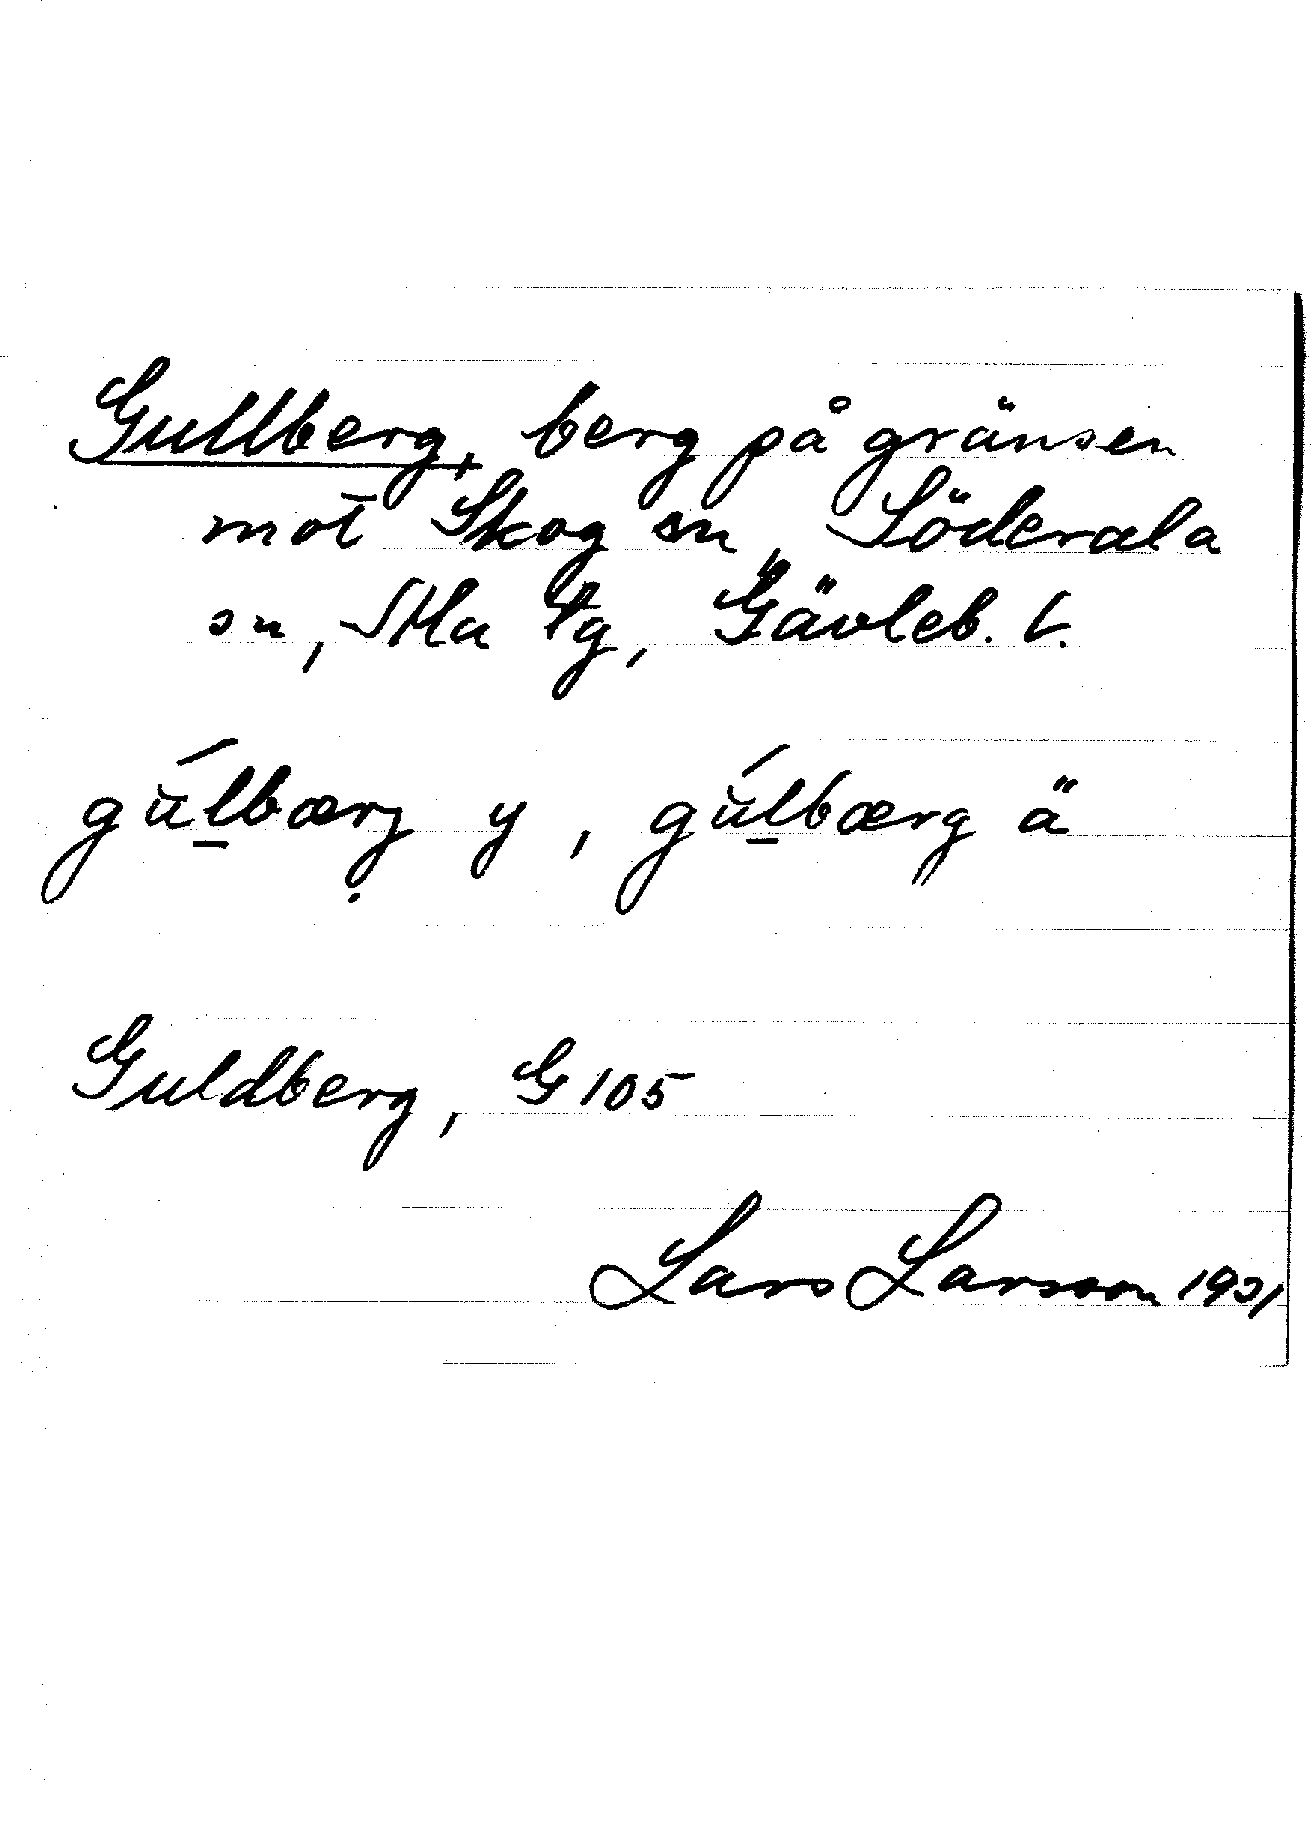 Gullberg, berg på gränsen
mot Skog sn, Söderala
sn, Ala tg, Gävleb. l.
gúlbærj y, gúlbærg ä
Guldberg, G 105
Lars Larsson 1931